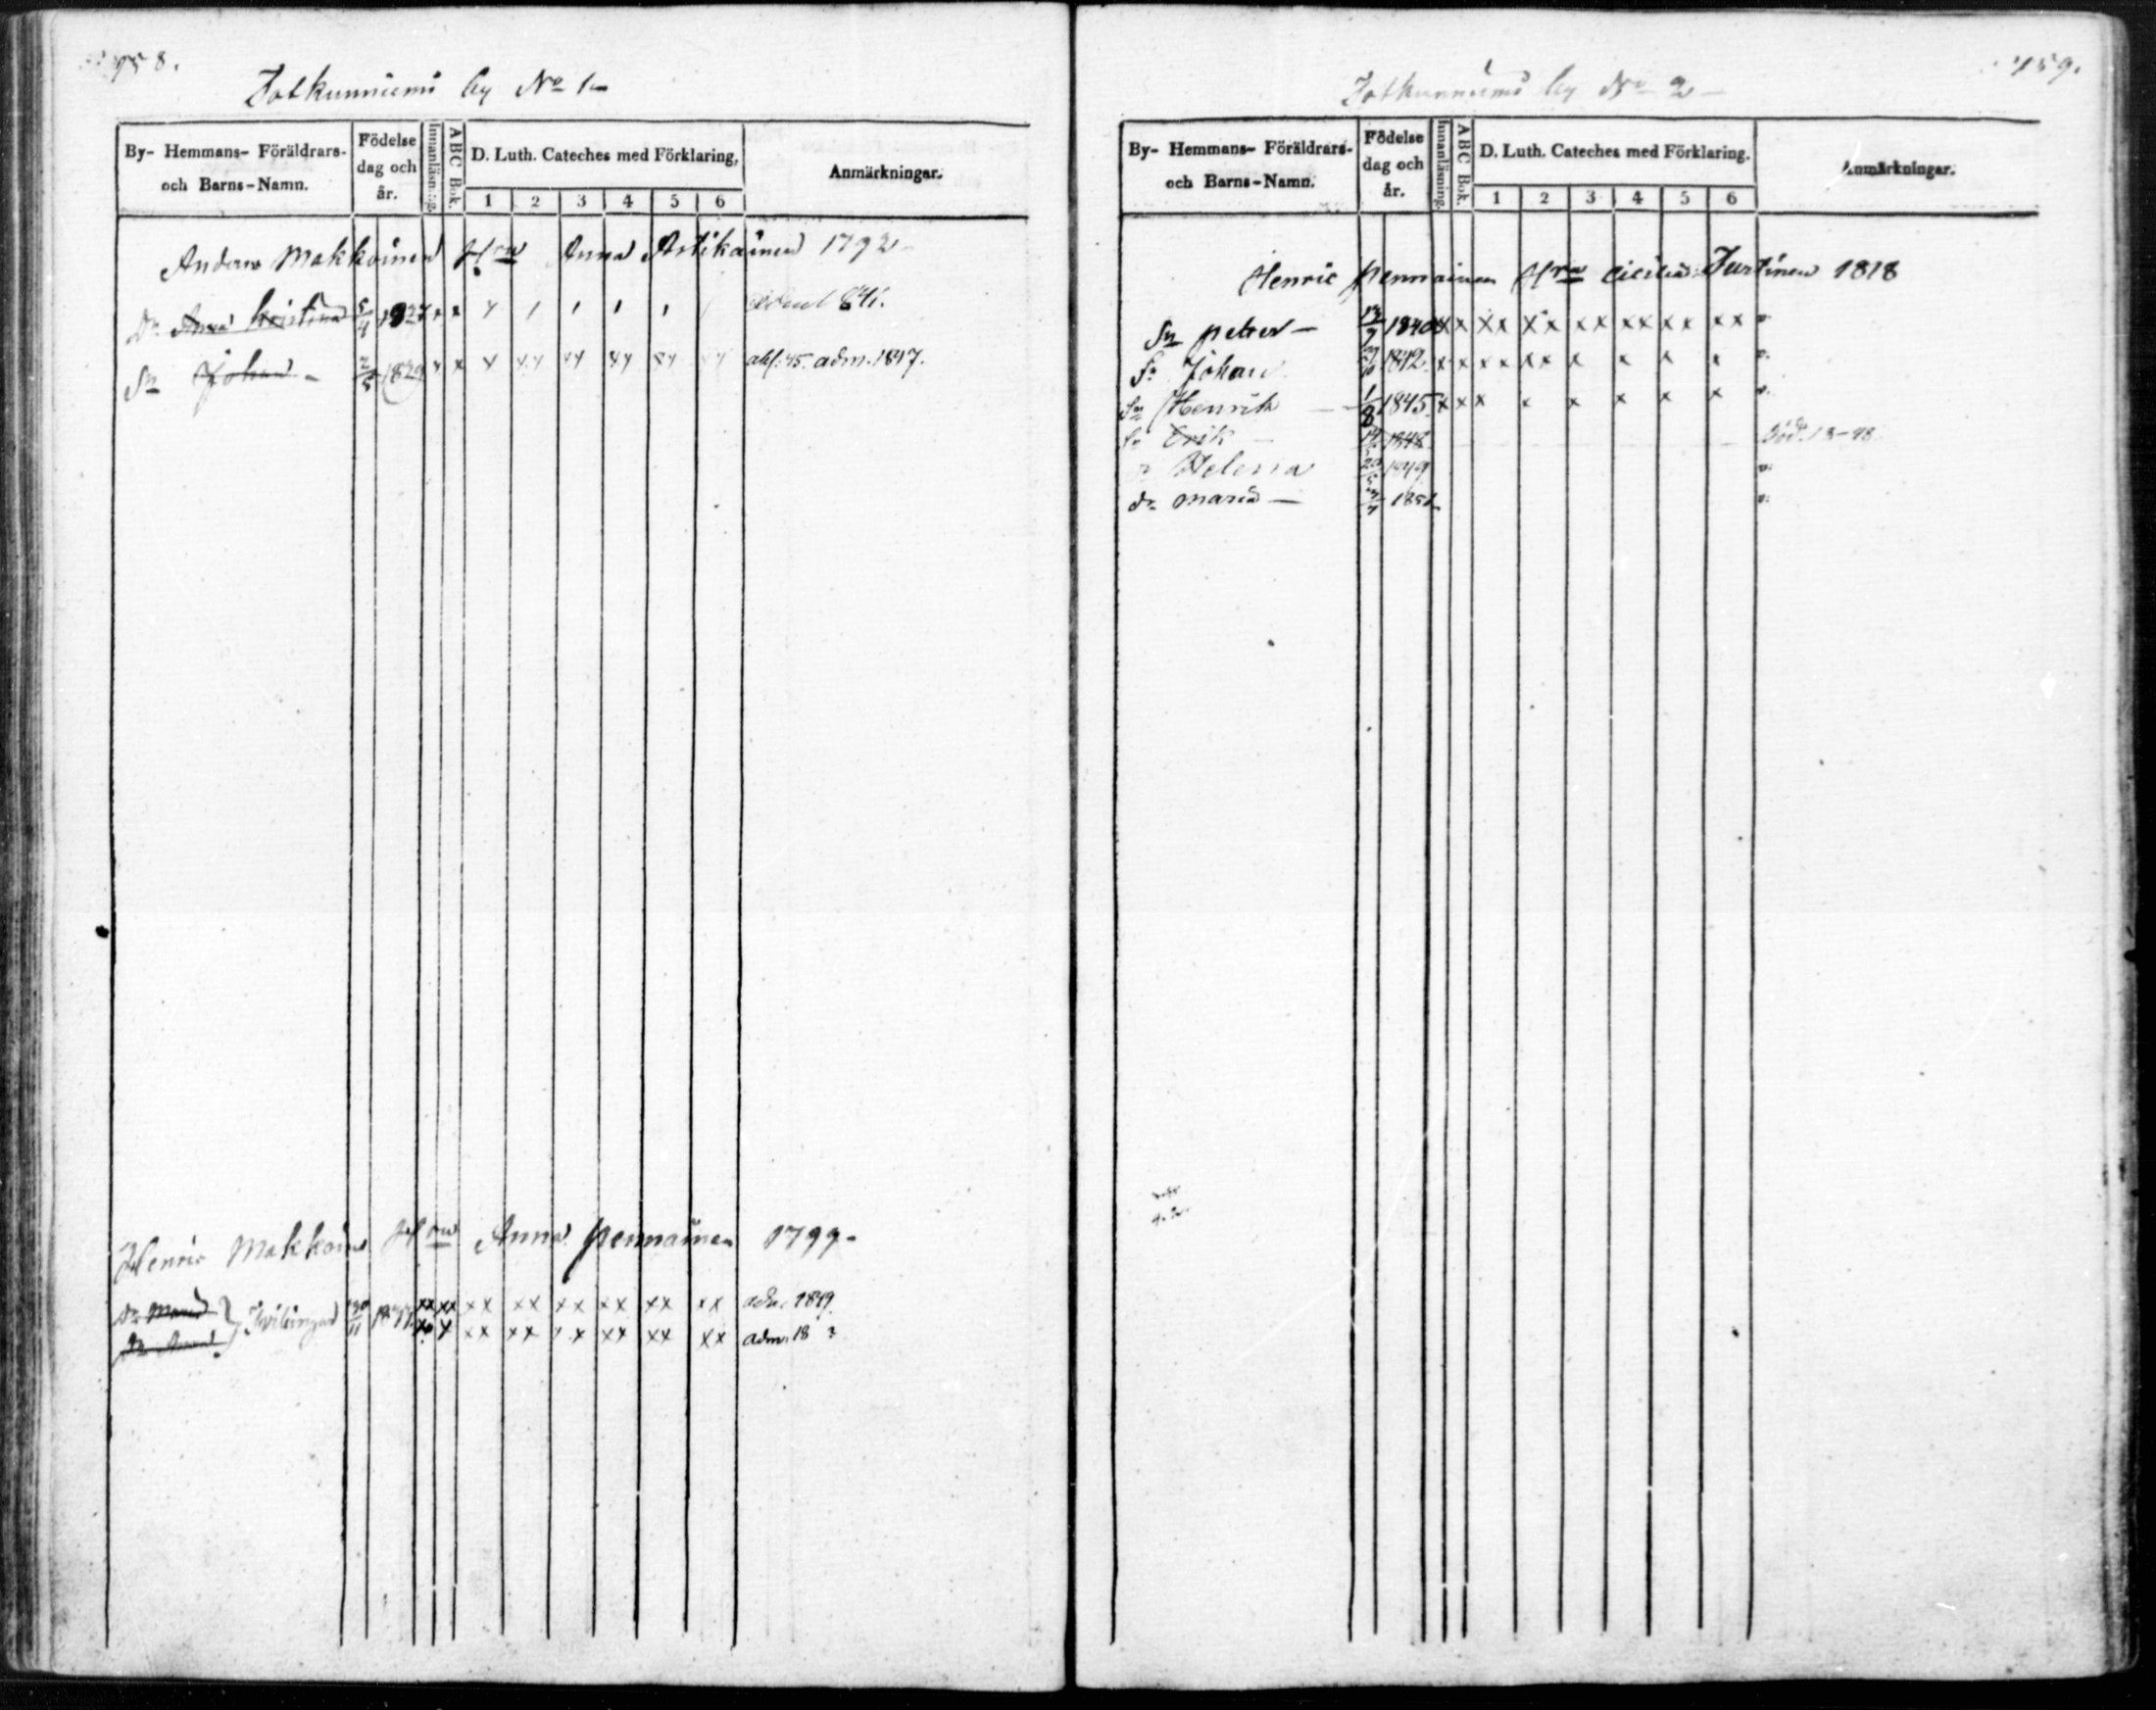 758.
Jotkunniemi by No 1
By- Hemmans- Föräldrars- och Barns-Namn.
Födelse dag och år.
Innanläsning.
ABC Bok.
D. Luth. Cateches med Förklaring.
1 2 3 4 5 6
Anmärkningar.
Anders Makkoinen H:ru Anna Astikainen 1792
Dr Anna Kristina 5/4 1827 x x x 1 1 1 1 1
Sn Johan - 2/5 1829 x x x xx xx xx xx xx abs. 45. adm. 1847.
Henric Makkoin H:ru Anna pennainen 1799-
Dr Maria } Tvilingar 20/11 xx xx xx xx xx xx xx xx adm. 1849
Dr Anna xx x xx xx xx xx xx xx adm. 18
759.
Jotkunniemi by No 2
By- Hemmans- Föräldrars- och Barns-Namn.
Födelse dag och år.
Innanläsning.
ABC Bok.
D. Luth. Cateches med Förklaring.
1 2 3 4 5 6
Anmärkningar.
Henric pennainen H:ru Cicilia Jurtinen 1818
Sn petter - 1840 xx xx xx xx xx xx xx v.
Sn Johan 1842 x x xx xx x x x x v.
Sn Henrik 1/8 1845 x x x x x x x x v.
Sn Erik 1848 död. 18-48
Dr Helena 1849 v.
Dr maria - 1851 v.